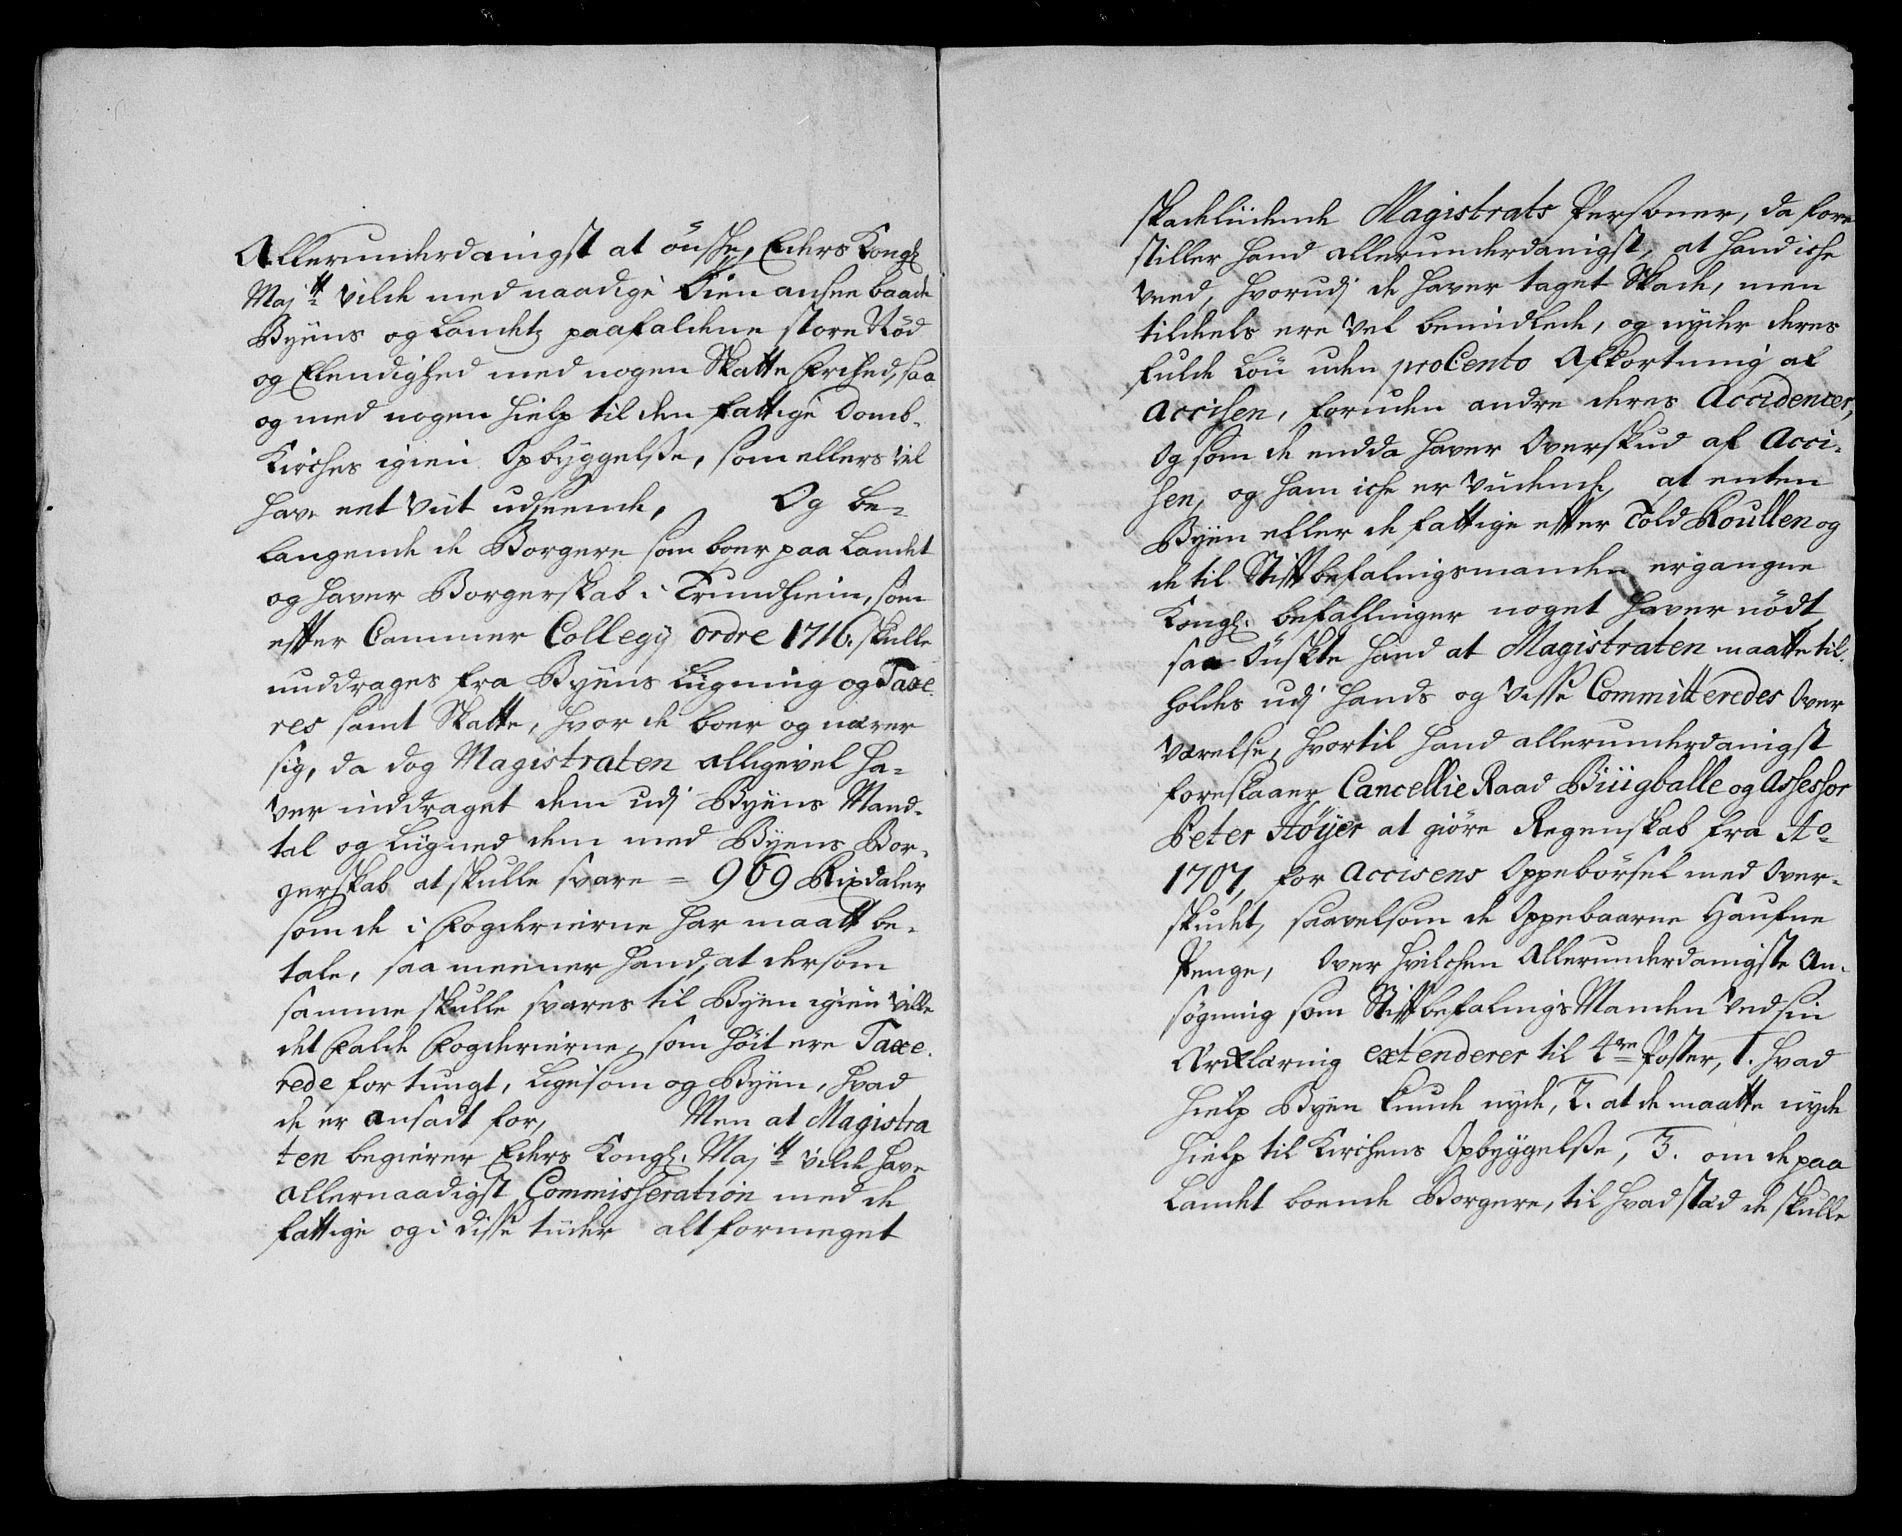 Allerunderdanigst at önske, Eders Kongl
Maj.tt vilde med naadige Öien ansee baade
Byens og Landetz paafaldene store Nöd
og Elendighed med nogen Skatte Frihed, saa
og med nogen Hielp til den fattige Domb-
Kirches igien Opbyggelse, som ellers vil
have eet vüt udseende, Og be-
langende de Borgere som boer paa Landet
og haver Borgerskab i Trundhiem, som
effter Cammer Collegy ordre 1716. skulle
unddrages fra Byens Ligning og Taxe-
res samt Skatte, hvor de boer og nærer
sig, da dog Magistraten alligevel ha-
ver inddraget dem udj Byens Mand-
tal og Ligned dem med Byens Bor-
gerskab at skulle svare = 969 Rixdaler
som de i Fogderierne har maatt be-
tale, saa meener hand, at dersom
samme skulle svares til Byen igien ville
det falde Fogderierne, som höit ere Taxe-
rede for tungt, ligesom og Byen, hvad
de er ansadt for, Men at Magistra
ten begierer Eders Kongl. Maj.tt vilde have
allernaadigst Commisseration med de
fattige og i disse tiider alt formeget
skadeliidende Magistrats Personer, da fore
stiller hand allerunderdanigst, at hand iche
veed, hvorudj de haver taget Skade, men
tildeels ere vel bemidlede, og nyder deres
fulde Lön uden proCento Afkortning af
Accisen, foruden andre deres Accidencer,
Og som de endda haver Overskud af Acci-
sen, og ham iche er vidende, at enten
Byen eller de fattige effter Told Roullen og
de til Stiftbefalingsmanden ergangne
Kongl. befallinger noget haver nödt
saa Önskte hand at Magistraten maatte til-
holdes udj hands og visse Committeredes Over
værelse, hvortil hand allerunderdanigst
foreslaaer Cancellie Raad Büigballe og Assessor
Peter Höÿer at giöre Regenskab fra Ao
1707, for Accisens Oppebörsel med Over-
skudet, saavelsom de Oppebaarne Haufne
Penge, Over hvilchen Allerunderdanigste An-
sögning som Stiftbefalings Manden ved sin
Erklæring extenderer til 4re Poster, 1. hvad
Hielp Byen kunde nyde, 2. at de maatte nyde
Hielp til Kirchens Opbyggelse, 3. om de paa
Landet boende Borgere, til hvad stæd de skulle